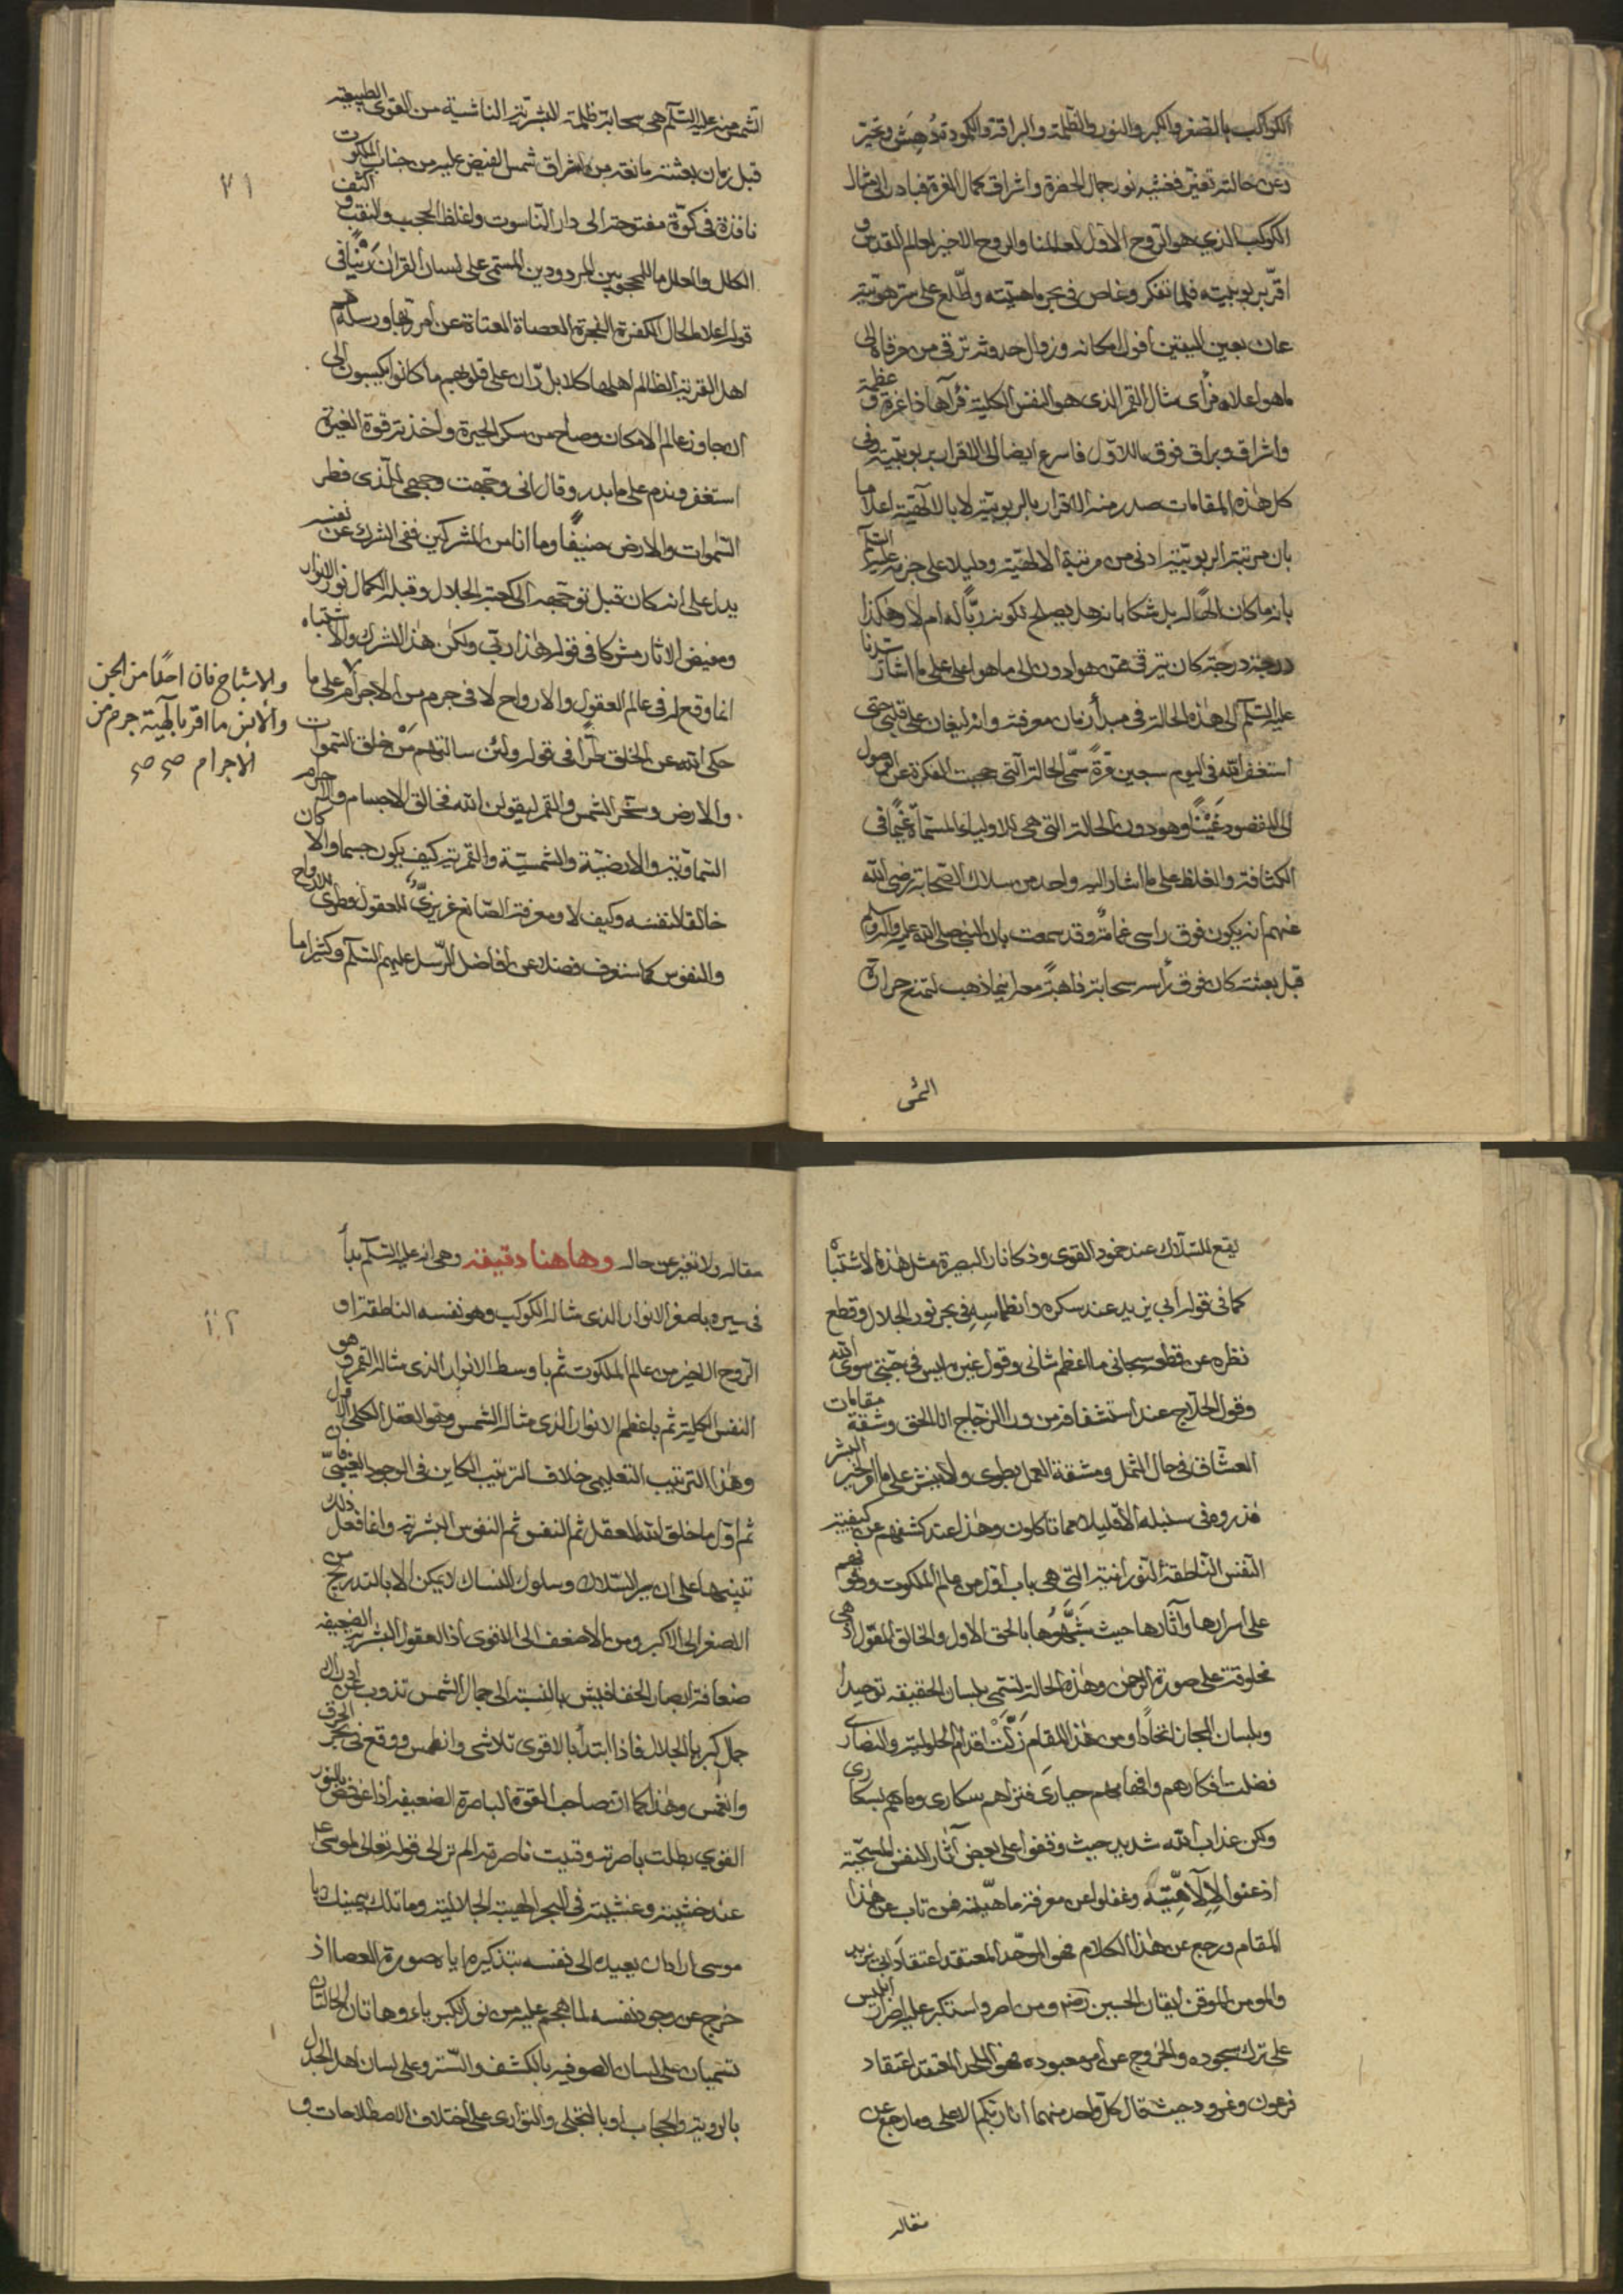 الكواكب بالصغر والكبر والنور والظلمة والبراقة والكمودة دهش وتحير
وعن حالته تغير فغشيه نور جمال الحضرة واشراق كمال الغرة فبادر الى مثال
الكوكب الذي هو الروح الاول لعالمنا والروح الاخير لعالم القدس و
اقر بربوبيته فلما تفكر وغاص في بحر ماهيته واطلع على سر هويته
عاين بعين اليقين افول امكانه وزوال حدوثه ترقى من حرفاه الى
ما هو اعلاه فرأى مثال القمر الذى هو النفس الكلية فرآها ذا غرة و عظمة
واشراق وبراق فوق مااللاول فاسرع ايضا الى الاقرار بربوبيته وفى
كل هذه المقامات صدر منه الاقرار بالربوبية لا بالالهية اعلاما
بان مرتبة الربوبية ادنى من مرتبة الالهية ودليلا على حزمه عليه السلم
بانه ما كان الها له بل شكا بانه هل يصلح لكونه ربا له ام لا وهكذا
درجة درجة كان يترقى عمن هو ادون الى ما هو اعلى على ما اشار سيدنا
عليه السلم الى هذه الحالة في مبدأ زمان معرفته وانه ليغان على قلبي حتى
استغفر الله فى اليوم سبعين مرة سمى الحالة التى حجبت الفكرة عن الوصول
الى المقصود غينا وهو دون الحالة التى هى للاولياء المسماة غيما في
الكثافة والغلظ على ما اشار اليه واحد من سلاك الصحابة رضى الله
عنهم انه يكون فوق راسى غمامة وقد سمعت بان النبى صلى الله عليه واله وسلم
قبل بعثته كان فوق رأسه سحابة ذاهبة معه اينما ذهب لتمنع حرارة
الشمس
٧١
الشمس منه عليه السلم هى سحابة ظلمة البشرية الناشية من القوى الطبيعية
قبل زمان بعثته مانعة من اشراق شمس الفيض عليه من جناب الملكوت
نافذة فى كوة مفتوحة الى دار الناسوت واغلظ الحجب والنقب و اكثف
الكلل والعلل ما للمحجوبين المردودين المسمى على لسان القران رينا فى
قوله اعلاما لحال الكفرة الفجرة العصاة العتاة عن امر ربها ورسله هم
اهل القرية الظالم اهلها كلا بل ران على قلوبهم ما كانوا يكسبون الى
ان جاوز عالم الامكان وصاح من سكر الحيرة واخذته قوة الغيرة
استغفر وندم على ما بدر وقال انى وجهت وجهى للذى فطر
السموات والارض حنيفا وما انا من المشركين فنفى الشرك عن نفسه
يدل على انه كان قبل توجهه الى كعبة الجلال وقبلة الكمال نور الانوار
ومفيض الاثار مشركا فى قوله هذا ربى ولكن هذا الشرك والاشتباه
انما وقع له فى عالم العقول والارواح لا فى جرم من الاجرام على ما
حكى الله عن الخلق طرا فى قوله ولئن سالتهم من خلق السموات
والارض وسخر الشمس والقمر ليقولن الله فخالق الاجسام والاجرام
السماوية والارضية والشمسية والقمرية كيف يكون جسما والا كان
خالقا لنفسه وكيف لا ومعرفة الصانع غريزى للعقول وفطرى للارواح
والنفوس كما ستعرف فضلا عن افاضل الرسل عليهم السلم وكثيرا ما
والاشباح فان احدا من الجن
والانس ما اقر بآلهية جرم من
الاجرام صح صح
يقع للسلاك عند خمود القوى وذكا نار البصيرة مثل هذه الاشتباه
كما فى قول ابى يزيد عند سكره وانطماسه فى بحر نور الجلال وقطع
نظره عن قطعه سبحانى ما اعظم شانى وقول غيره ليس فى جبتى سوى الله
وقول الحلاج عند استشفافه من وراء الزجاج انا الحق وشقة مقامات
العشاق فى حال الثمل ومشقة العمل يطوى ولا ينشر على ما اولخير البشر
فذروه فى سنبله الا قليلا مما تاكلون وهذا عند كشفهم عن كيفية
النفس الناطقة النورانية التى هى باب اول من عالم الملكوت ووقوفهم
على اسرارها وآثارها حيث شبهوها بالحق الاول والخالق المقول اذ هى
مخلوقة على صورة الرحمن وهذه الحالة تسمى بلسان الحقيقه توحيدا
وبلسان المجاز اتحادا ومن هذا المقام زلت اقدام الحلولية والنصارى
فضلت افكارهم وافهامهم حيارى فتراهم سكارى وما هم بسكارى
ولكن عذاب الله شديد حيث وقفوا على بعض آثار الانفس المسبحة
اذعنوا لالآهيته وغفلوا عن معرفة ماهيته فمن تاب عن هذا
المقام ورجع عن هذا الكلام فهو الموحد المعتقد اعتقاد ابى يزيد
والمومن الموقن ايقان الحسين رضه ومن اصر واستكبر عليه اصرار ابليس
على ترك سجوده والخروج عن امر معبوده فهو الملحد المعتقد اعتقاد
فرعون ونمرود حيث قال كل واحد منهما انا ربكم الاعلى وما رجع عن
مقاله
مقاله ولا تغير عن حاله وهاهنا دقيقه وهى انه عليه السلم بدأ
فى سيره باصغر الانوار الذى مثاله الكوكب وهو نفسه الناطقة او
الروح الاخير من عالم الملكوت ثم باوسط الانوار الذى مثاله القمر وهو
النفس الكلية ثم باعظم الانوار الذى مثاله الشمس وهو العقل الكلى الاول
وهذا الترتيب التعليمى خلاف الترتيب الكاين فى الوجود العينى فان
ثم اول ما خلق الله العقل ثم النفس ثم النفوس البشرية وانما فعل ذلك
تنبيها على ان سير السلاك وسلوك النساك لا يمكن الا بالتدريج من
الاصغر الى الاكبر ومن الاضعف الى الاقوى اذ العقول البشرية الضعيفه
ضعافة ابصار الخفافيش بالنسبة الى جمال الشمس تذوب عن ادراك
جمال كبرياء الجلال فاذا ابتدأ بالاقوى تلاشى وانطمس ووقع فى بحر الحرق
وانغمس وهذا كما ان صاحب القوة الباصرة الضعيفه اذا غوفص بالنور
القوي بطلت باصرته وبقيت ناصرته الم تر الى قوله تعالى لموسى
عند خشيته وغشيته فى البحر الهيبة الجلالية وما تلك بيمينك يا
موسى اراد ان يعيده الى نفسه بتذكيره اياه صورة العصا اذ
خرج عن وجود نفسه لما هجم عليه من نور الكبرياء وهاتان الحالتان
تسميان على لسان الصوفيه بالكشف والستر وعلى لسان اهل الجدل
بالروية والحجاب او بالتجلى والتوارى على اختلاف الاصطلاحات و